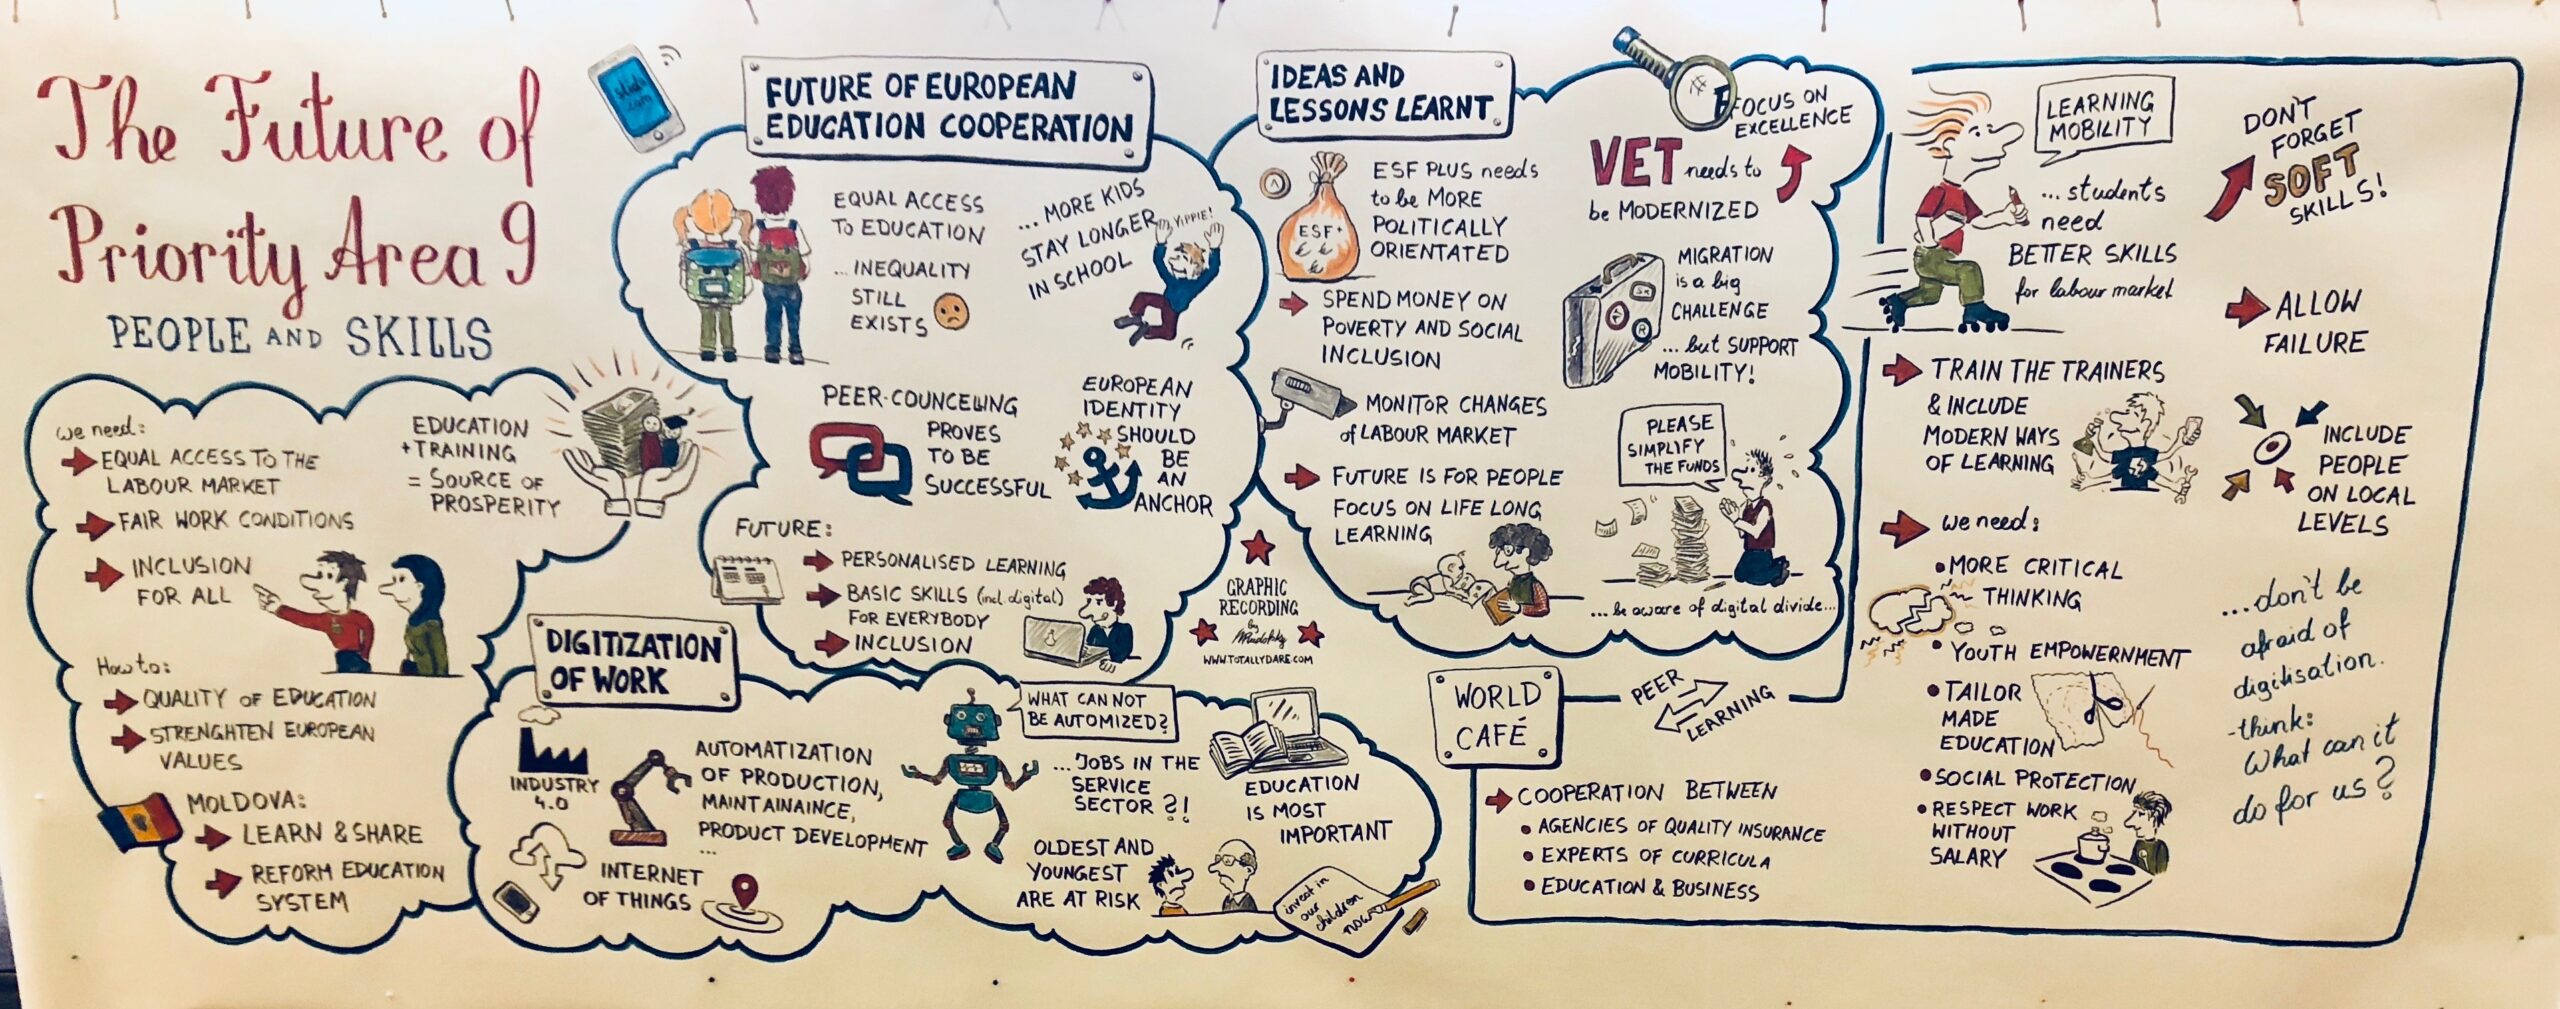 The Future of
Priority Area 9
PEOPLE AND SKILLS
we need:
EQUAL ACCESS TO THE
LABOUR MARKET
FAIR WORK CONDITIONS
INCLUSION
FOR ALL
EDUCATION
+ TRAINING
= SOURCE OF
PROSPERITY
How to:
QUALITY OF EDUCATION
STRENGHTEN EUROPEAN
VALUES
MOLDOVA:
LEARN & SHARE
REFORM EDUCATION
SYSTEM
FUTURE OF EUROPEAN
EDUCATION COOPERATION
EQUAL ACCESS
TO EDUCATION
...INEQUALITY
STILL
EXISTS
...MORE KIDS
STAY LONGER
IN SCHOOL
YIPPIE!
PEER-COUNCELLING
PROVES
TO BE
SUCCESSFUL
EUROPEAN
IDENTITY
SHOULD
BE
AN
ANCHOR
FUTURE:
PERSONALISED LEARNING
BASIC SKILLS (incl. digital)
FOR EVERYBODY
INCLUSION
GRAPHIC
RECORDING
by
WWW.TOTALLYDARE.COM
DIGITIZATION
OF WORK
INDUSTRY
4.0
AUTOMATIZATION
OF PRODUCTION,
MAINTAINAINCE,
PRODUCT DEVELOPMENT
...
INTERNET
OF THINGS
WHAT CAN NOT
BE AUTOMIZED?
...JOBS IN THE
SERVICE
SECTOR?!
OLDEST AND
YOUNGEST
ARE AT RISK
EDUCATION
IS MOST
IMPORTANT
invest in
our
children
now
IDEAS AND
LESSONS LEARNT
ESF+
ESF PLUS needs
to be MORE
POLITICALLY
ORIENTATED
SPEND MONEY ON
POVERTY AND SOCIAL
INCLUSION
MONITOR CHANGES
of LABOUR MARKET
FUTURE IS FOR PEOPLE
FOCUS ON LIFE LONG
LEARNING
FOCUS ON
EXCELLENCE
VET needs to
be MODERNIZED
MIGRATION
is a big
CHALLENGE
...but SUPPORT
MOBILITY!
PLEASE
SIMPLIFY
THE FUNDS
...be aware of digital divide...
WORLD
CAFÉ
PEER
LEARNING
COOPERATION BETWEEN
AGENCIES OF QUALITY INSURANCE
EXPERTS OF CURRICULA
EDUCATION & BUSINESS
LEARNING
MOBILITY
...students
need
BETTER SKILLS
for labour market
TRAIN THE TRAINERS
& INCLUDE
MODERN WAYS
OF LEARNING
we need:
MORE CRITICAL
THINKING
YOUTH EMPOWERNMENT
TAILOR
MADE
EDUCATION
SOCIAL PROTECTION
RESPECT WORK
WITHOUT
SALARY
DON'T
FORGET
SOFT
SKILLS!
ALLOW
FAILURE
INCLUDE
PEOPLE
ON LOCAL
LEVELS
...don't be
afraid of
digitisation.
-think:
What can it
do for us?